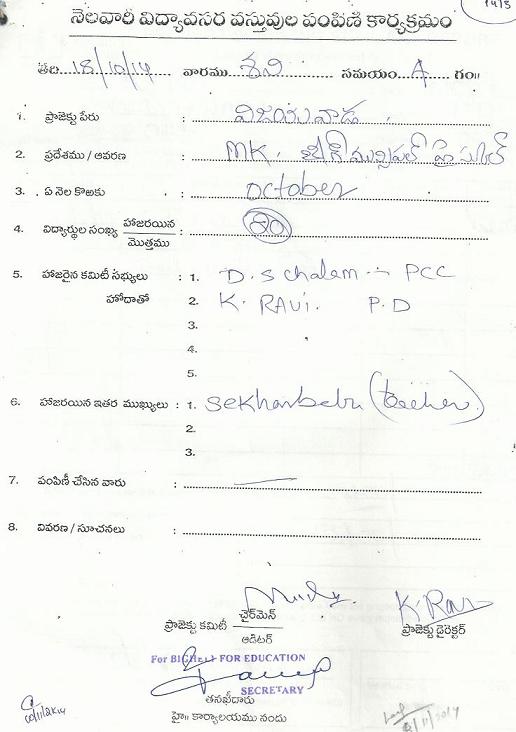 నెలవారీ విద్యావసర వస్తువుల పంపిణీ కార్యక్రమం
తేది 18/10/14 వారము శని సమయం A గం॥
1. ప్రాజెక్టు పేరు : విజయవాడ
2. ప్రదేశము / ఆవరణ : MK. మున్సిపల్ హై స్కూల్
3. ఏ నెల కొఱకు : October
4. విద్యార్థుల సంఖ్య హాజరయిన / మొత్తము : 80
5. హాజరైన కమిటీ సభ్యులు : 1. D. S chalam - PCC
హోదాతో 2. K. RAVI. P.D
3.
4.
5.
6. హాజరయిన ఇతర ముఖ్యులు : 1. Sekharbabu (teacher)
2.
3.
7. పంపిణీ చేసిన వారు :
8. వివరణ / సూచనలు :
K. Ravi
ప్రాజెక్టు కమిటీ ఛైర్‌మెన్ / ఆడిటర్
ప్రాజెక్టు డైరెక్టర్
FOR EDUCATION
SECRETARY
తనఖీదారు
హై॥ కార్యాలయము నందు